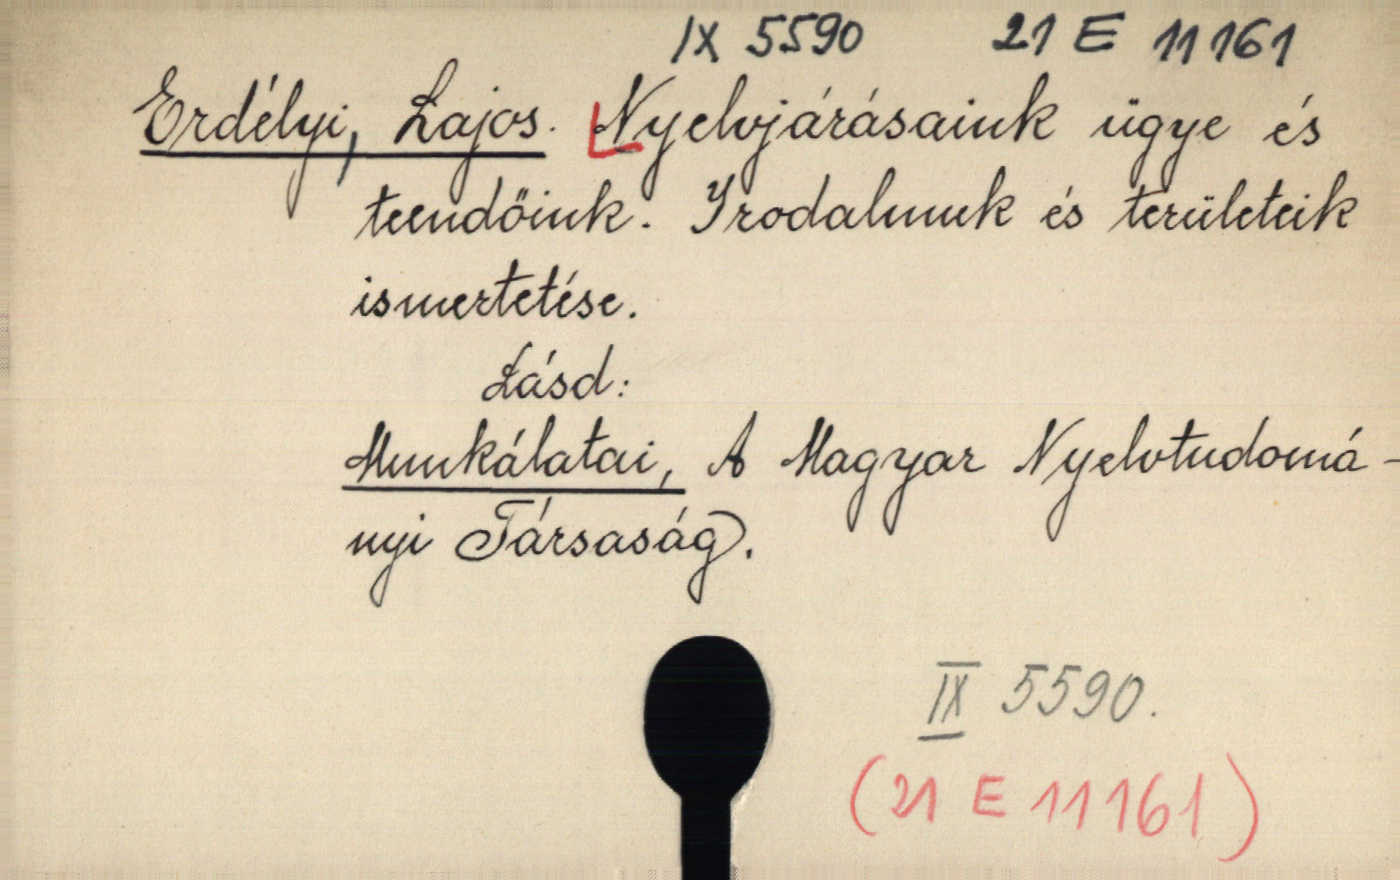 IX 5590 21 E 11161
Erdélyi, Lajos. Nyelvjárásaink ügye és
teendőink. Irodalmuk és területeik
ismertetése.
Lásd:
Munkálatai, A Magyar Nyelvtudomá-
nyi Társaság.
IX 5590.
(21 E 11161)